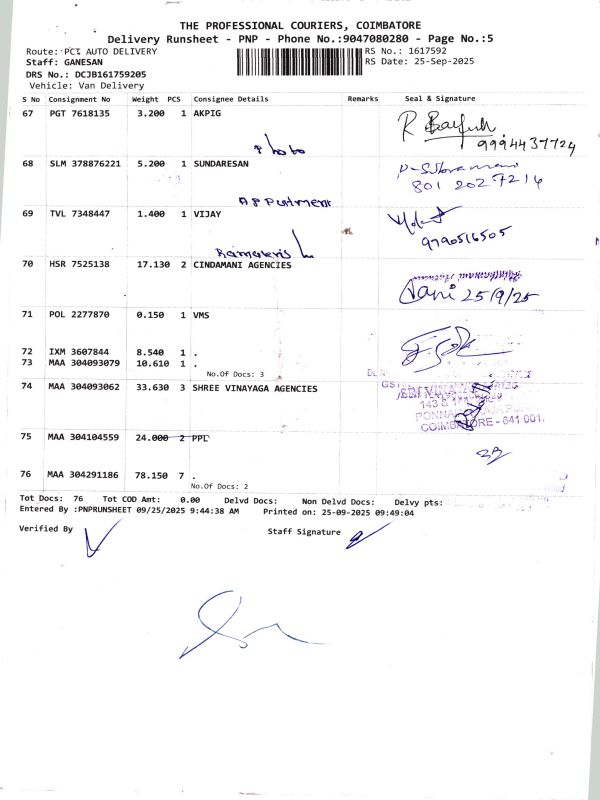 THE PROFESSIONAL COURIERS, COIMBATORE
Delivery Runsheet - PNP - Phone No.:9047080280 - Page No.:5
Route: PCT AUTO DELIVERY RS No.: 1617592
Staff: GANESAN RS Date: 25-Sep-2025
DRS No.: DCJB161759205
Vehicle: Van Delivery
S No Consignment No Weight PCS Consignee Details Remarks Seal & Signature
67 PGT 7618135 3.200 1 AKPIG
Photo 9994437724
68 SLM 378876221 5.200 1 SUNDARESAN
801 2027214
69 TVL 7348447 1.400 1 VIJAY
9790516505
70 HSR 7525138 17.130 2 CINDAMANI AGENCIES
25/9/25
71 POL 2277870 0.150 1 VMS
72 IXM 3607844 8.540 1 .
73 MAA 304093079 10.610 1 .
No.Of Docs: 3
74 MAA 304093062 33.630 3 SHREE VINAYAGA AGENCIES
COIMBATORE - 641 001.
75 MAA 304104559 24.000 2 PPL
76 MAA 304291186 78.150 7 .
No.Of Docs: 2
Tot Docs: 76 Tot COD Amt: 0.00 Delvd Docs: Non Delvd Docs: Delvy pts:
Entered By :PNPRUNSHEET 09/25/2025 9:44:38 AM Printed on: 25-09-2025 09:49:04
Verified By Staff Signature